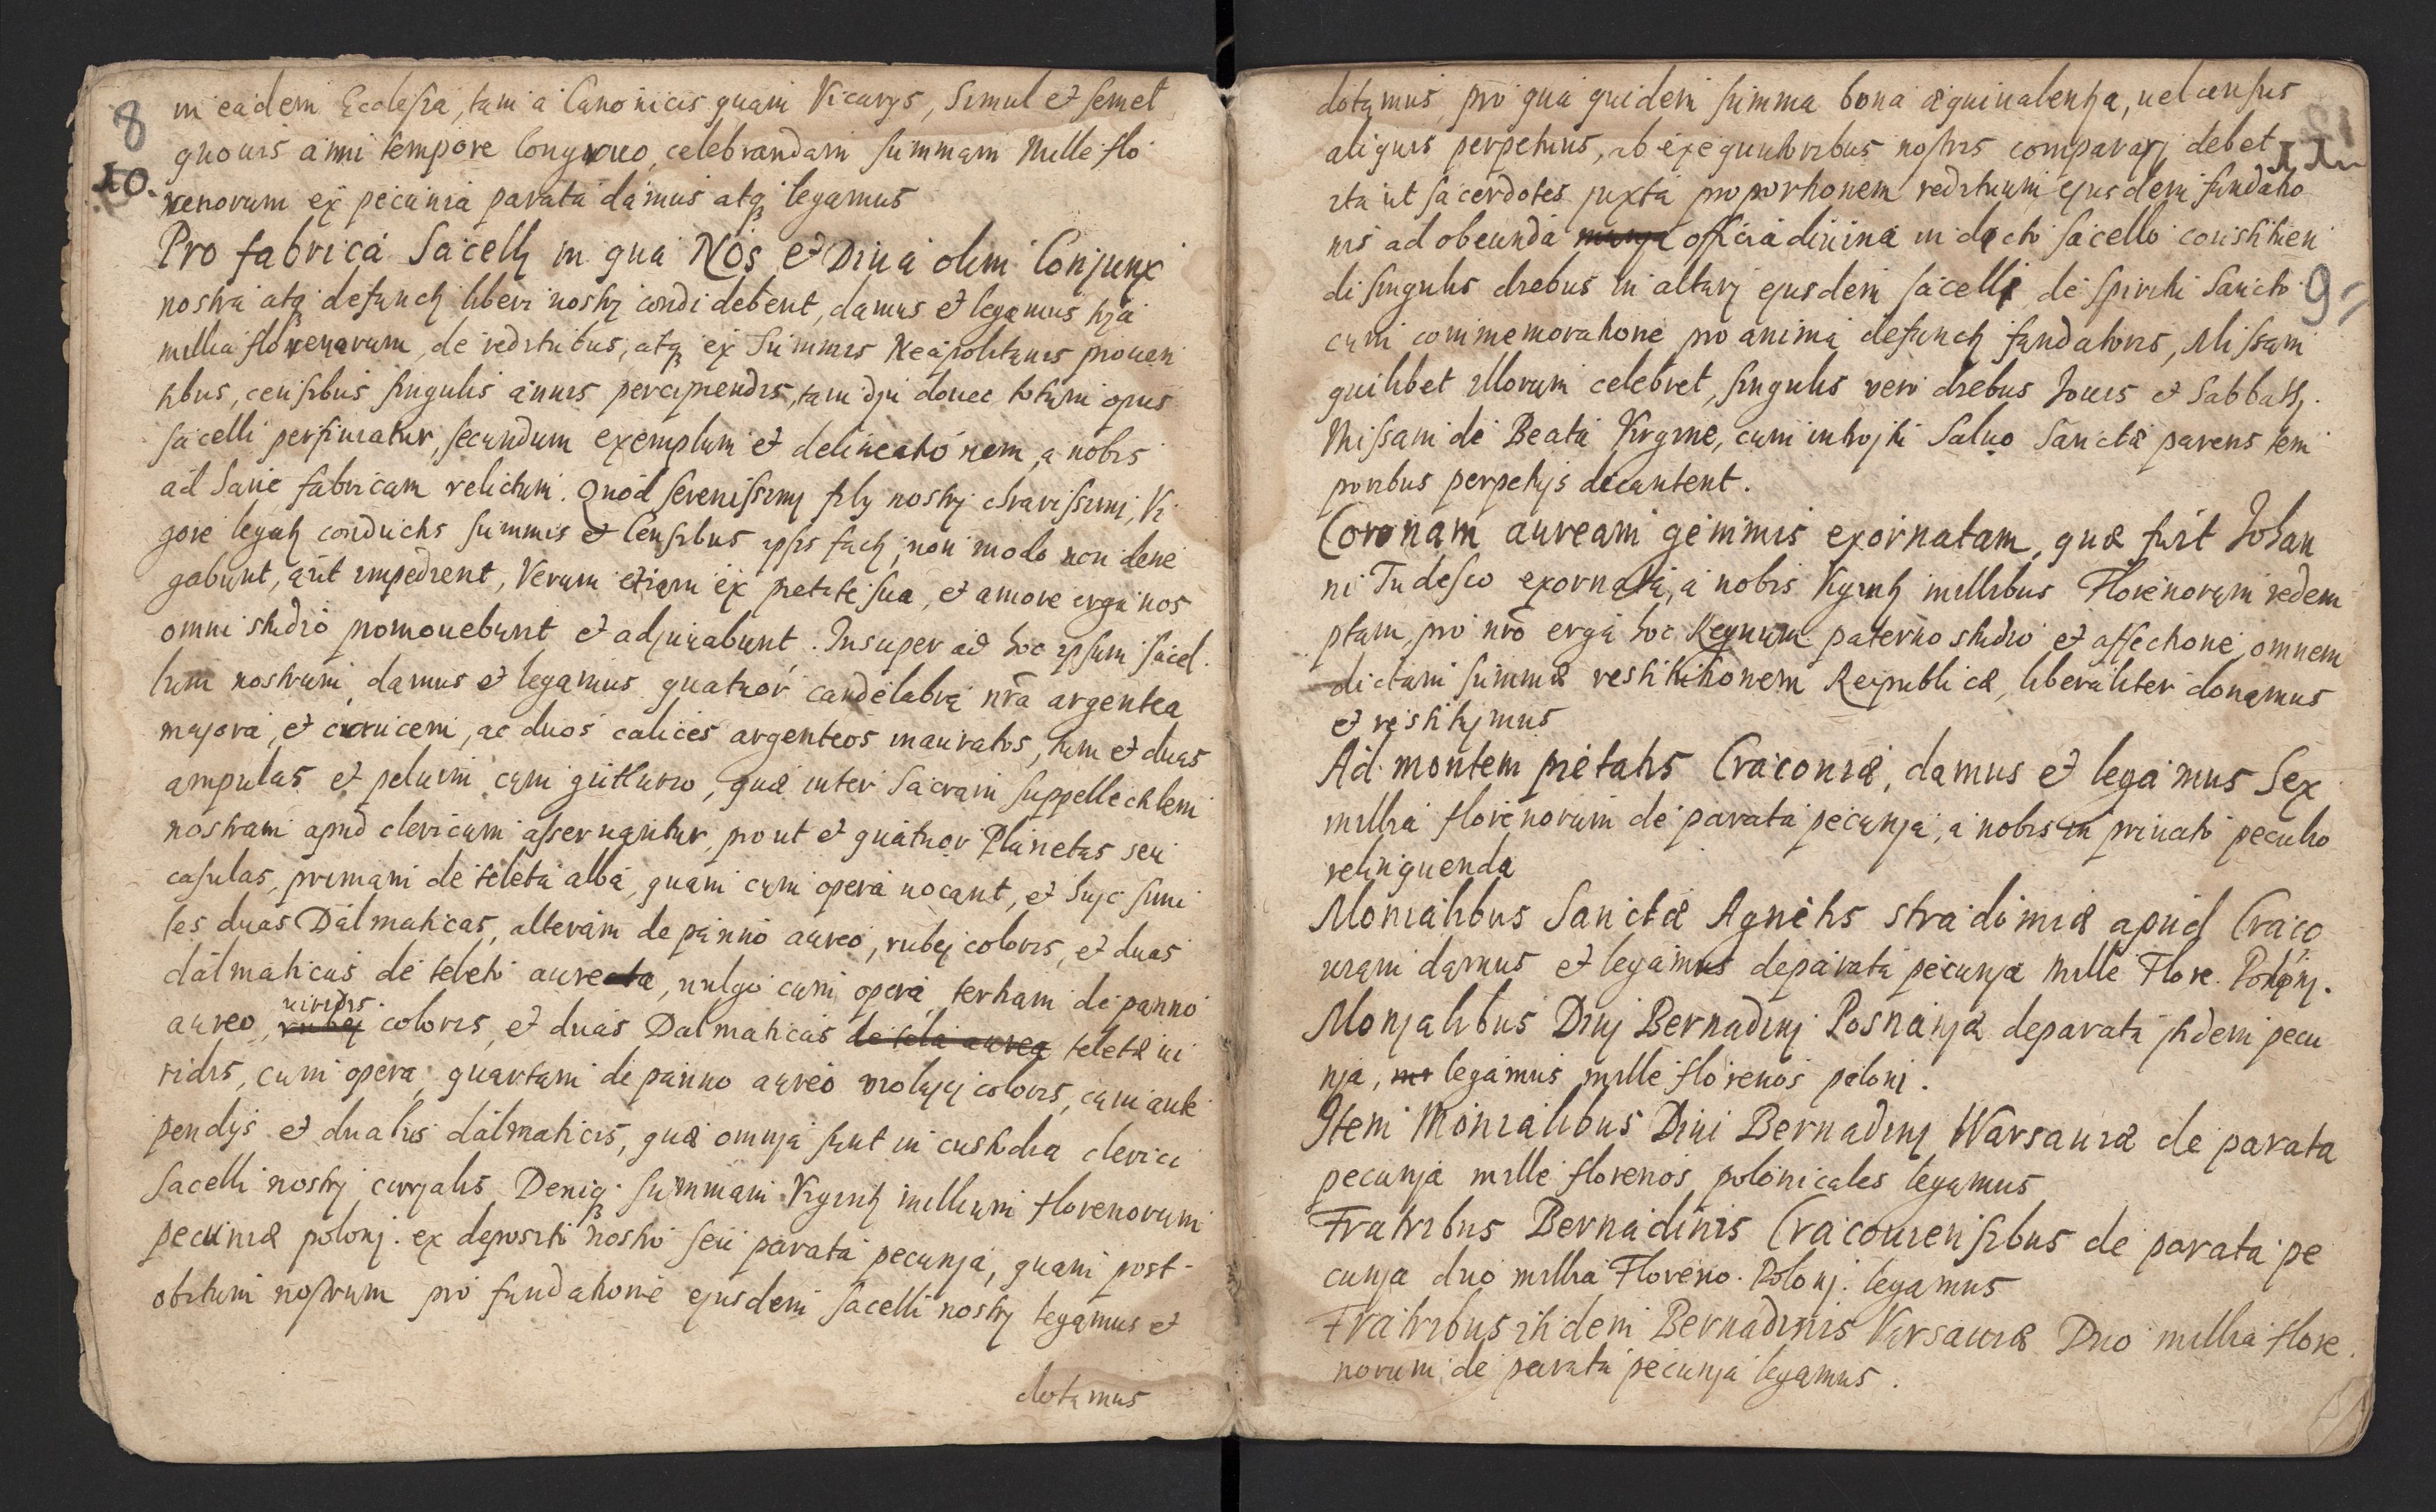 8
in eadem Ecclesia, tam a Canonicis quam Vicarys, simul et semel
quouis anni tempore congruo, celebrandam summam Mille flo
10.
renorum ex pecunia parata damus atq3 legamus
Pro fabrica Sacellj in qua Nos et Diua olim Conjunx
nostra atq3 defunctj liberi nostrj condi debent, damus et legamus trja
millia florenorum, de reditibus, atq3 ex summis Neapolitanis prouen
tibus, censibus singulis annis percipiendis, tam diu donec totum opus
sacelli perficiatur, secundum exemplum et delineationem, a nobis
ad hanc fabricam relictum. Quod serenissimj filij nostrj charissimi, Vi
gore legatj conductis summis et Censibus ipsis factj, non modo non dene
gabunt, aut impedient, Verum etiam ex pietate sua, et amore erga nos
omni studio promouebunt et adjuuabunt. Insuper ad hoc ipsum sacel
lum nostrum, damus et legamus quatuor candelabra nra argentea
majora, et crucem, ac duos calices argenteos inauratos, tum et duas
ampulas et peluim cum gutturio, quæ inter Sacram suppellectilem
nostram apud clericum asseruantur, prout et quatuor Planetas seu
casulas, primam de teleta alba, quam cum opera uocant, et hujc simi
les duas Dalmaticas, alteram de panno aureo, rubej coloris, et duas
dalmaticas de teleto aurea, uulgo cum opera, tertiam de panno
aureo, uiridis coloris, et duas Dalmaticas de tela aurea teletæ ui
ridis, cum opera, quartam de panno aureo violacej coloris, cum ante
pendijs et duabus dalmaticis, quæ omnja sunt in custodia clerici
sacelli nostrj curjalis. Deniq3 summam Vigintj millium florenorum
pecuniæ polonj. ex deposito nostro seu parata pecunja, quam post-
obitum nostrum pro fundatione ejusdem sacelli nostrj legamus et
dotamus
dotamus, pro qua quidem summa bona æquiualentia, uel census
aliquis perpetuus, ab exequutoribus nostris compararj debet
11
ita ut sacerdotes juxta proportionem redituum ejusdem fundatio
nis ad obeunda officia diuina in dicto sacello constituen
di singulis diebus in altarj ejusdem sacelli de spiritu Sancto
9
cum commemoratione pro anima defunctj fundatoris, Missam
quilibet illorum celebret, singulis vero diebus Jouis et Sabbatj.
Missam de Beata Virgine, cum introjtu Salue Sancta parens tem
poribus perpetujs decantent.
Coronam auream gemmis exornatam, quæ fuit Johan
ni Tudesco exornata, a nobis Vigintj millibus Florenorum redem
ptam, pro nro erga hoc Regnum paterno studio et affectione, omnem
dictam summæ restitutionem Reipublicæ, liberaliter donamus
et restitujmus
Ad montem pietatis Cracouiæ, damus et legamus Sex
millia florenorum de parata pecunja, a nobis in priuato peculio
relinquenda
Monialibus Sanctæ Agnetis stradomiæ apud Craco
uiam damus et legamus de parata pecunja Mille Flore. Polonj.
Monjalibus Diuj Bernadinj Posnanjæ de parata itidem pecu
nja, legamus mille florenos polonj.
Item Monialibus Diui Bernadinj Warsauiæ de parata
pecunja mille florenos polonicales legamus
Fratribus Bernadinis Cracouiensibus de parata pe
cunja duo millia Floreno. Polonj. legamus
Fratribus itidem Bernadinis Varsauiæ Duo millia flore
norum de parata pecunja legamus.